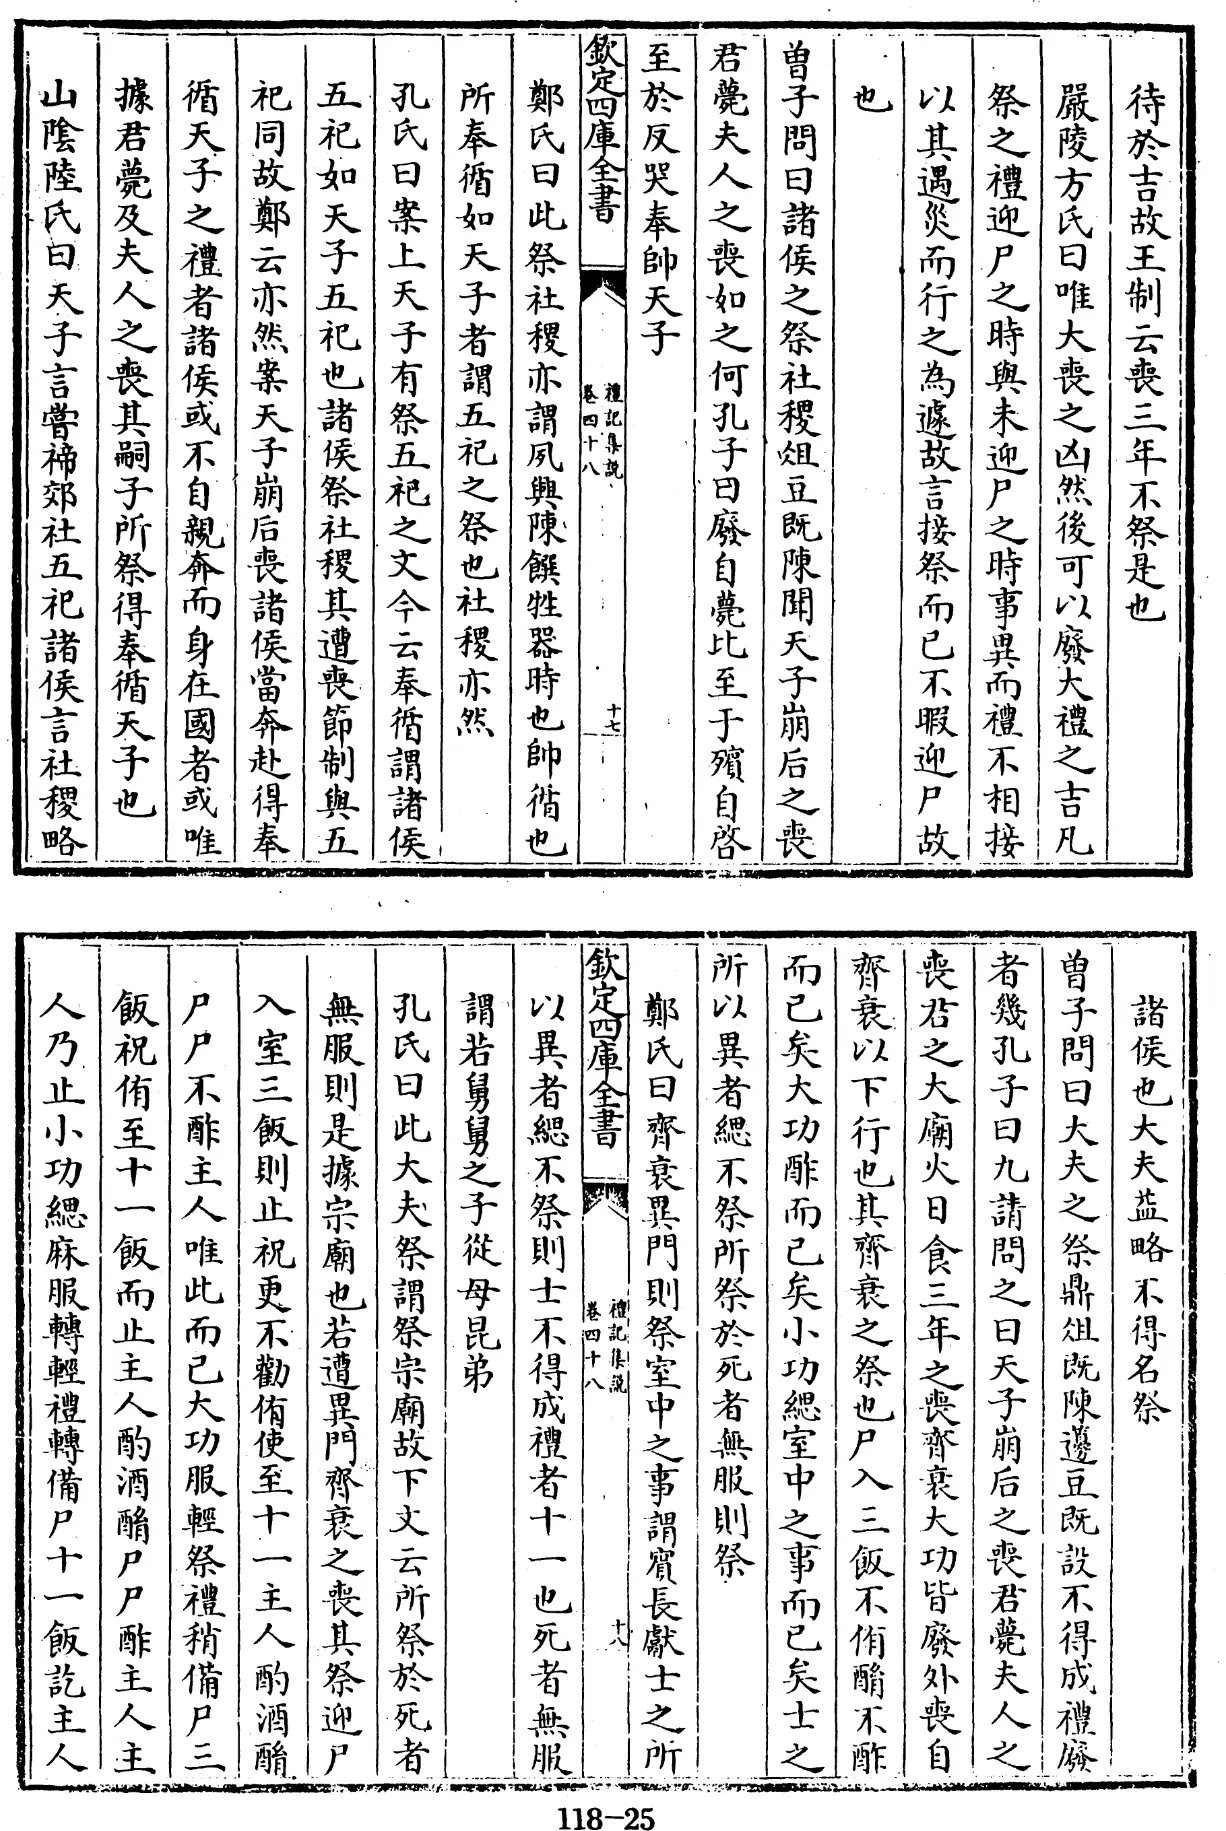 待於吉故王制云喪三年不祭是也
嚴陵方氏曰唯大喪之凶然後可以廢大禮之吉凡
祭之禮迎尸之時與未迎尸之時事異而禮不相接
以其遇災而行之為遽故言接祭而已不暇迎尸故
也
曽子問曰諸侯之祭社稷俎豆既陳聞天子崩后之喪
君薨夫人之喪如之何孔子曰廢自薨比至于殯自啓
至於反哭奉帥天子
欽定四庫全書
禮記集說
卷四十八
十七
鄭氏曰此祭社稷亦謂夙興陳饌牲器時也帥循也
所奉循如天子者謂五祀之祭也社稷亦然
孔氏曰案上天子有祭五祀之文今云奉循謂諸侯
五祀如天子五祀也諸侯祭社稷其遭喪節制與五
祀同故鄭云亦然案天子崩后喪諸侯當奔赴得奉
循天子之禮者諸侯或不自親奔而身在國者或唯
據君薨及夫人之喪其嗣子所祭得奉循天子也
山陰陸氏曰天子言嘗禘郊社五祀諸侯言社稷略
諸侯也大夫益略不得名祭
曽子問曰大夫之祭鼎俎既陳籩豆既設不得成禮廢
者幾孔子曰九請問之曰天子崩后之喪君薨夫人之
喪君之大廟火日食三年之喪齊衰大功皆廢外喪自
齊衰以下行也其齊衰之祭也尸入三飯不侑酳不酢
而已矣大功酢而已矣小功緦室中之事而已矣士之
所以異者緦不祭所祭於死者無服則祭
欽定四庫全書
禮記集說
卷四十八
十八
鄭氏曰齊衰異門則祭室中之事謂賓長獻士之所
以異者緦不祭則士不得成禮者十一也死者無服
謂若舅舅之子從母昆弟
孔氏曰此大夫祭謂祭宗廟故下文云所祭於死者
無服則是據宗廟也若遭異門齊衰之喪其祭迎尸
入室三飯則止祝更不勸侑使至十一主人酌酒酳
尸尸不酢主人唯此而已大功服輕祭禮稍備尸三
飯祝侑至十一飯而止主人酌酒酳尸尸酢主人主
人乃止小功緦麻服轉輕禮轉備尸十一飯訖主人
118-25